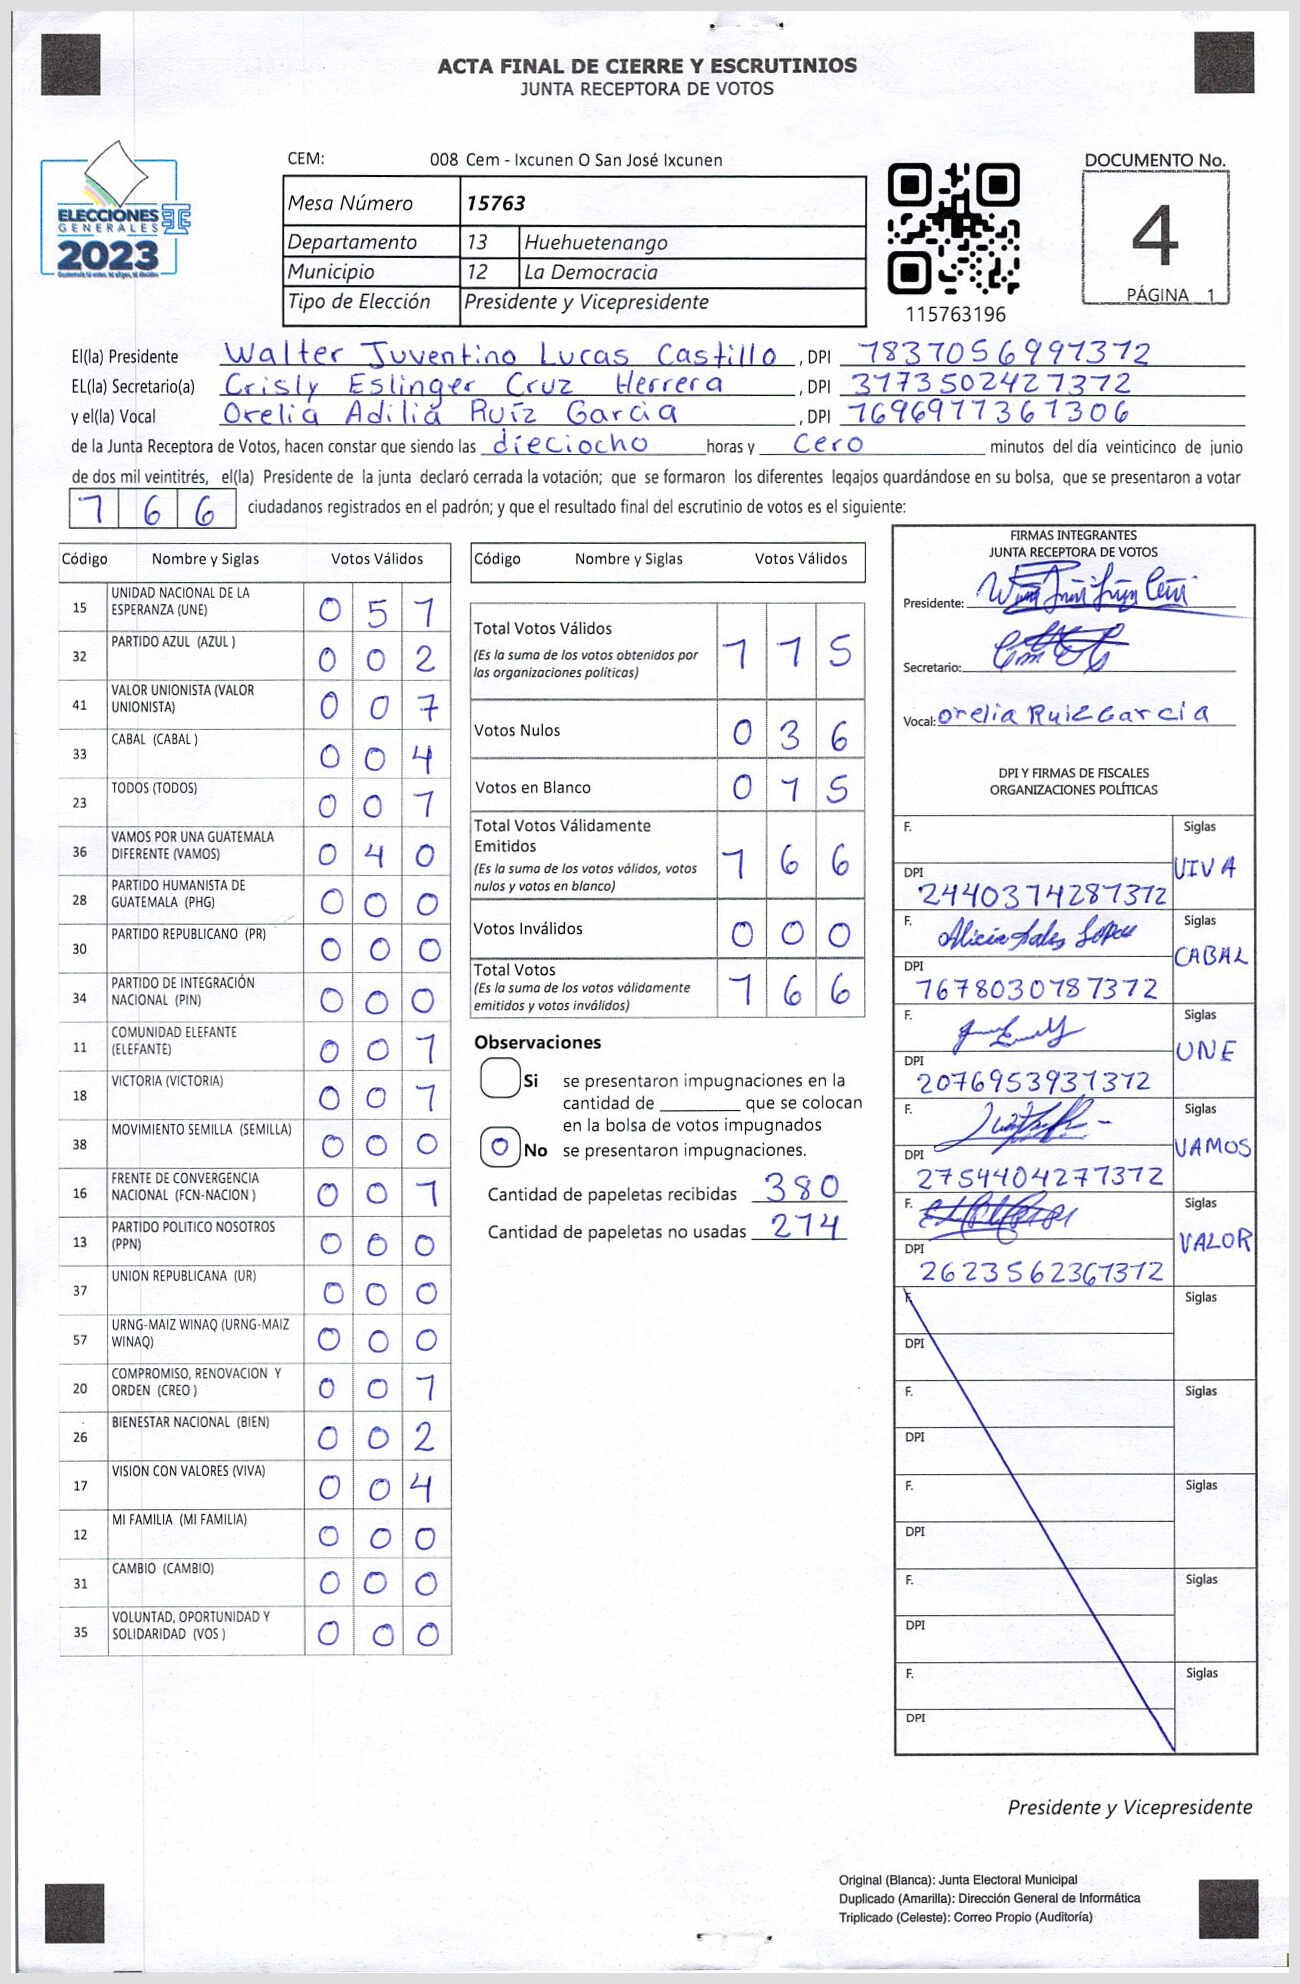 ACTA FINAL DE CIERRE Y ESCRUTINIOS
JUNTA RECEPTORA DE VOTOS
ELECCIONES
GENERALES
2023
CEM: 008 Cem - Ixcunen O San José Ixcunen
Mesa Número 15763
Departamento 13 Huehuetenango
Municipio 12 La Democracia
Tipo de Elección Presidente y Vicepresidente
115763196
DOCUMENTO No.
4
PÁGINA 1
El(la) Presidente Walter Juventino Lucas Castillo, DPI 1831056991312
EL(la) Secretario(a) Crisly Eslinger Cruz Herrera, DPI 3113502421312
y el(la) Vocal Orelia Adilia Ruíz Garcia, DPI 1696911361306
de la Junta Receptora de Votos, hacen constar que siendo las dieciocho horas y cero minutos del día veinticinco de junio
de dos mil veintitrés, el(la) Presidente de la junta declaró cerrada la votación; que se formaron los diferentes legajos guardándose en su bolsa, que se presentaron a votar
166 ciudadanos registrados en el padrón; y que el resultado final del escrutinio de votos es el siguiente:
Código Nombre y Siglas Votos Válidos
15 UNIDAD NACIONAL DE LA ESPERANZA (UNE) 051
32 PARTIDO AZUL (AZUL ) 002
41 VALOR UNIONISTA (VALOR UNIONISTA) 007
33 CABAL (CABAL ) 004
23 TODOS (TODOS) 001
36 VAMOS POR UNA GUATEMALA DIFERENTE (VAMOS) 040
28 PARTIDO HUMANISTA DE GUATEMALA (PHG) 000
30 PARTIDO REPUBLICANO (PR) 000
34 PARTIDO DE INTEGRACIÓN NACIONAL (PIN) 000
11 COMUNIDAD ELEFANTE (ELEFANTE) 001
18 VICTORIA (VICTORIA) 001
38 MOVIMIENTO SEMILLA (SEMILLA) 000
16 FRENTE DE CONVERGENCIA NACIONAL (FCN-NACION ) 001
13 PARTIDO POLITICO NOSOTROS (PPN) 000
37 UNION REPUBLICANA (UR) 000
57 URNG-MAIZ WINAQ (URNG-MAIZ WINAQ) 000
20 COMPROMISO, RENOVACION Y ORDEN (CREO ) 001
26 BIENESTAR NACIONAL (BIEN) 002
17 VISION CON VALORES (VIVA) 004
12 MI FAMILIA (MI FAMILIA) 000
31 CAMBIO (CAMBIO) 000
35 VOLUNTAD, OPORTUNIDAD Y SOLIDARIDAD (VOS ) 000
Código Nombre y Siglas Votos Válidos
Total Votos Válidos 115
(Es la suma de los votos obtenidos por
las organizaciones políticas)
Votos Nulos 036
Votos en Blanco 015
Total Votos Válidamente
Emitidos 166
(Es la suma de los votos válidos, votos
nulos y votos en blanco)
Votos Inválidos 000
Total Votos 166
(Es la suma de los votos válidamente
emitidos y votos inválidos)
Observaciones
Si se presentaron impugnaciones en la
cantidad de ________ que se colocan
en la bolsa de votos impugnados
No se presentaron impugnaciones.
Cantidad de papeletas recibidas 380
Cantidad de papeletas no usadas 214
FIRMAS INTEGRANTES
JUNTA RECEPTORA DE VOTOS
Presidente:
Secretario:
Vocal: Orelia Ruiz Garcia
DPI Y FIRMAS DE FISCALES
ORGANIZACIONES POLÍTICAS
F. Siglas
VIVA
DPI
2440314281312
F. Siglas
CABAL
DPI
1618030181312
F. Siglas
UNE
DPI
2016953931312
F. Siglas
VAMOS
DPI
2154404211312
F. Siglas
VALOR
DPI
2623562361312
F. Siglas
DPI
F. Siglas
DPI
F. Siglas
DPI
F. Siglas
DPI
F. Siglas
DPI
Presidente y Vicepresidente
Original (Blanca): Junta Electoral Municipal
Duplicado (Amarilla): Dirección General de Informática
Triplicado (Celeste): Correo Propio (Auditoría)